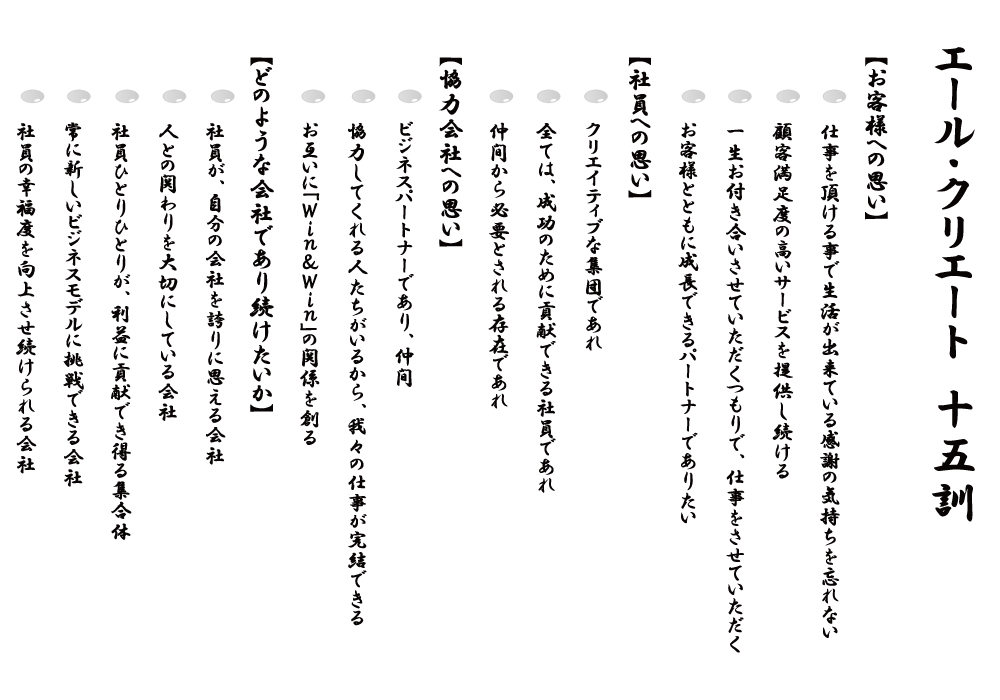 エール・クリエート 十五訓
【お客様への思い】
仕事を頂ける事で生活が出来ている感謝の気持ちを忘れない
顧客満足度の高いサービスを提供し続ける
一生お付き合いさせていただくつもりで、仕事をさせていただく
お客様とともに成長できるパートナーでありたい
【社員への思い】
クリエイティブな集団であれ
全ては、成功のために貢献できる社員であれ
仲間から必要とされる存在であれ
【協力会社への思い】
ビジネスパートナーであり、仲間
協力してくれる人たちがいるから、我々の仕事が完結できる
お互いに「Win&Win」の関係を創る
【どのような会社であり続けたいか】
社員が、自分の会社を誇りに思える会社
人との関わりを大切にしている会社
社員ひとりひとりが、利益に貢献でき得る集合体
常に新しいビジネスモデルに挑戦できる会社
社員の幸福度を向上させ続けられる会社